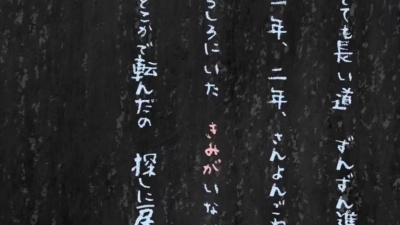 とても長い道 ずんずん進
一年、二年、さんよんご
うしろにいた きみがいな
どこかで転んだの 探しに戻